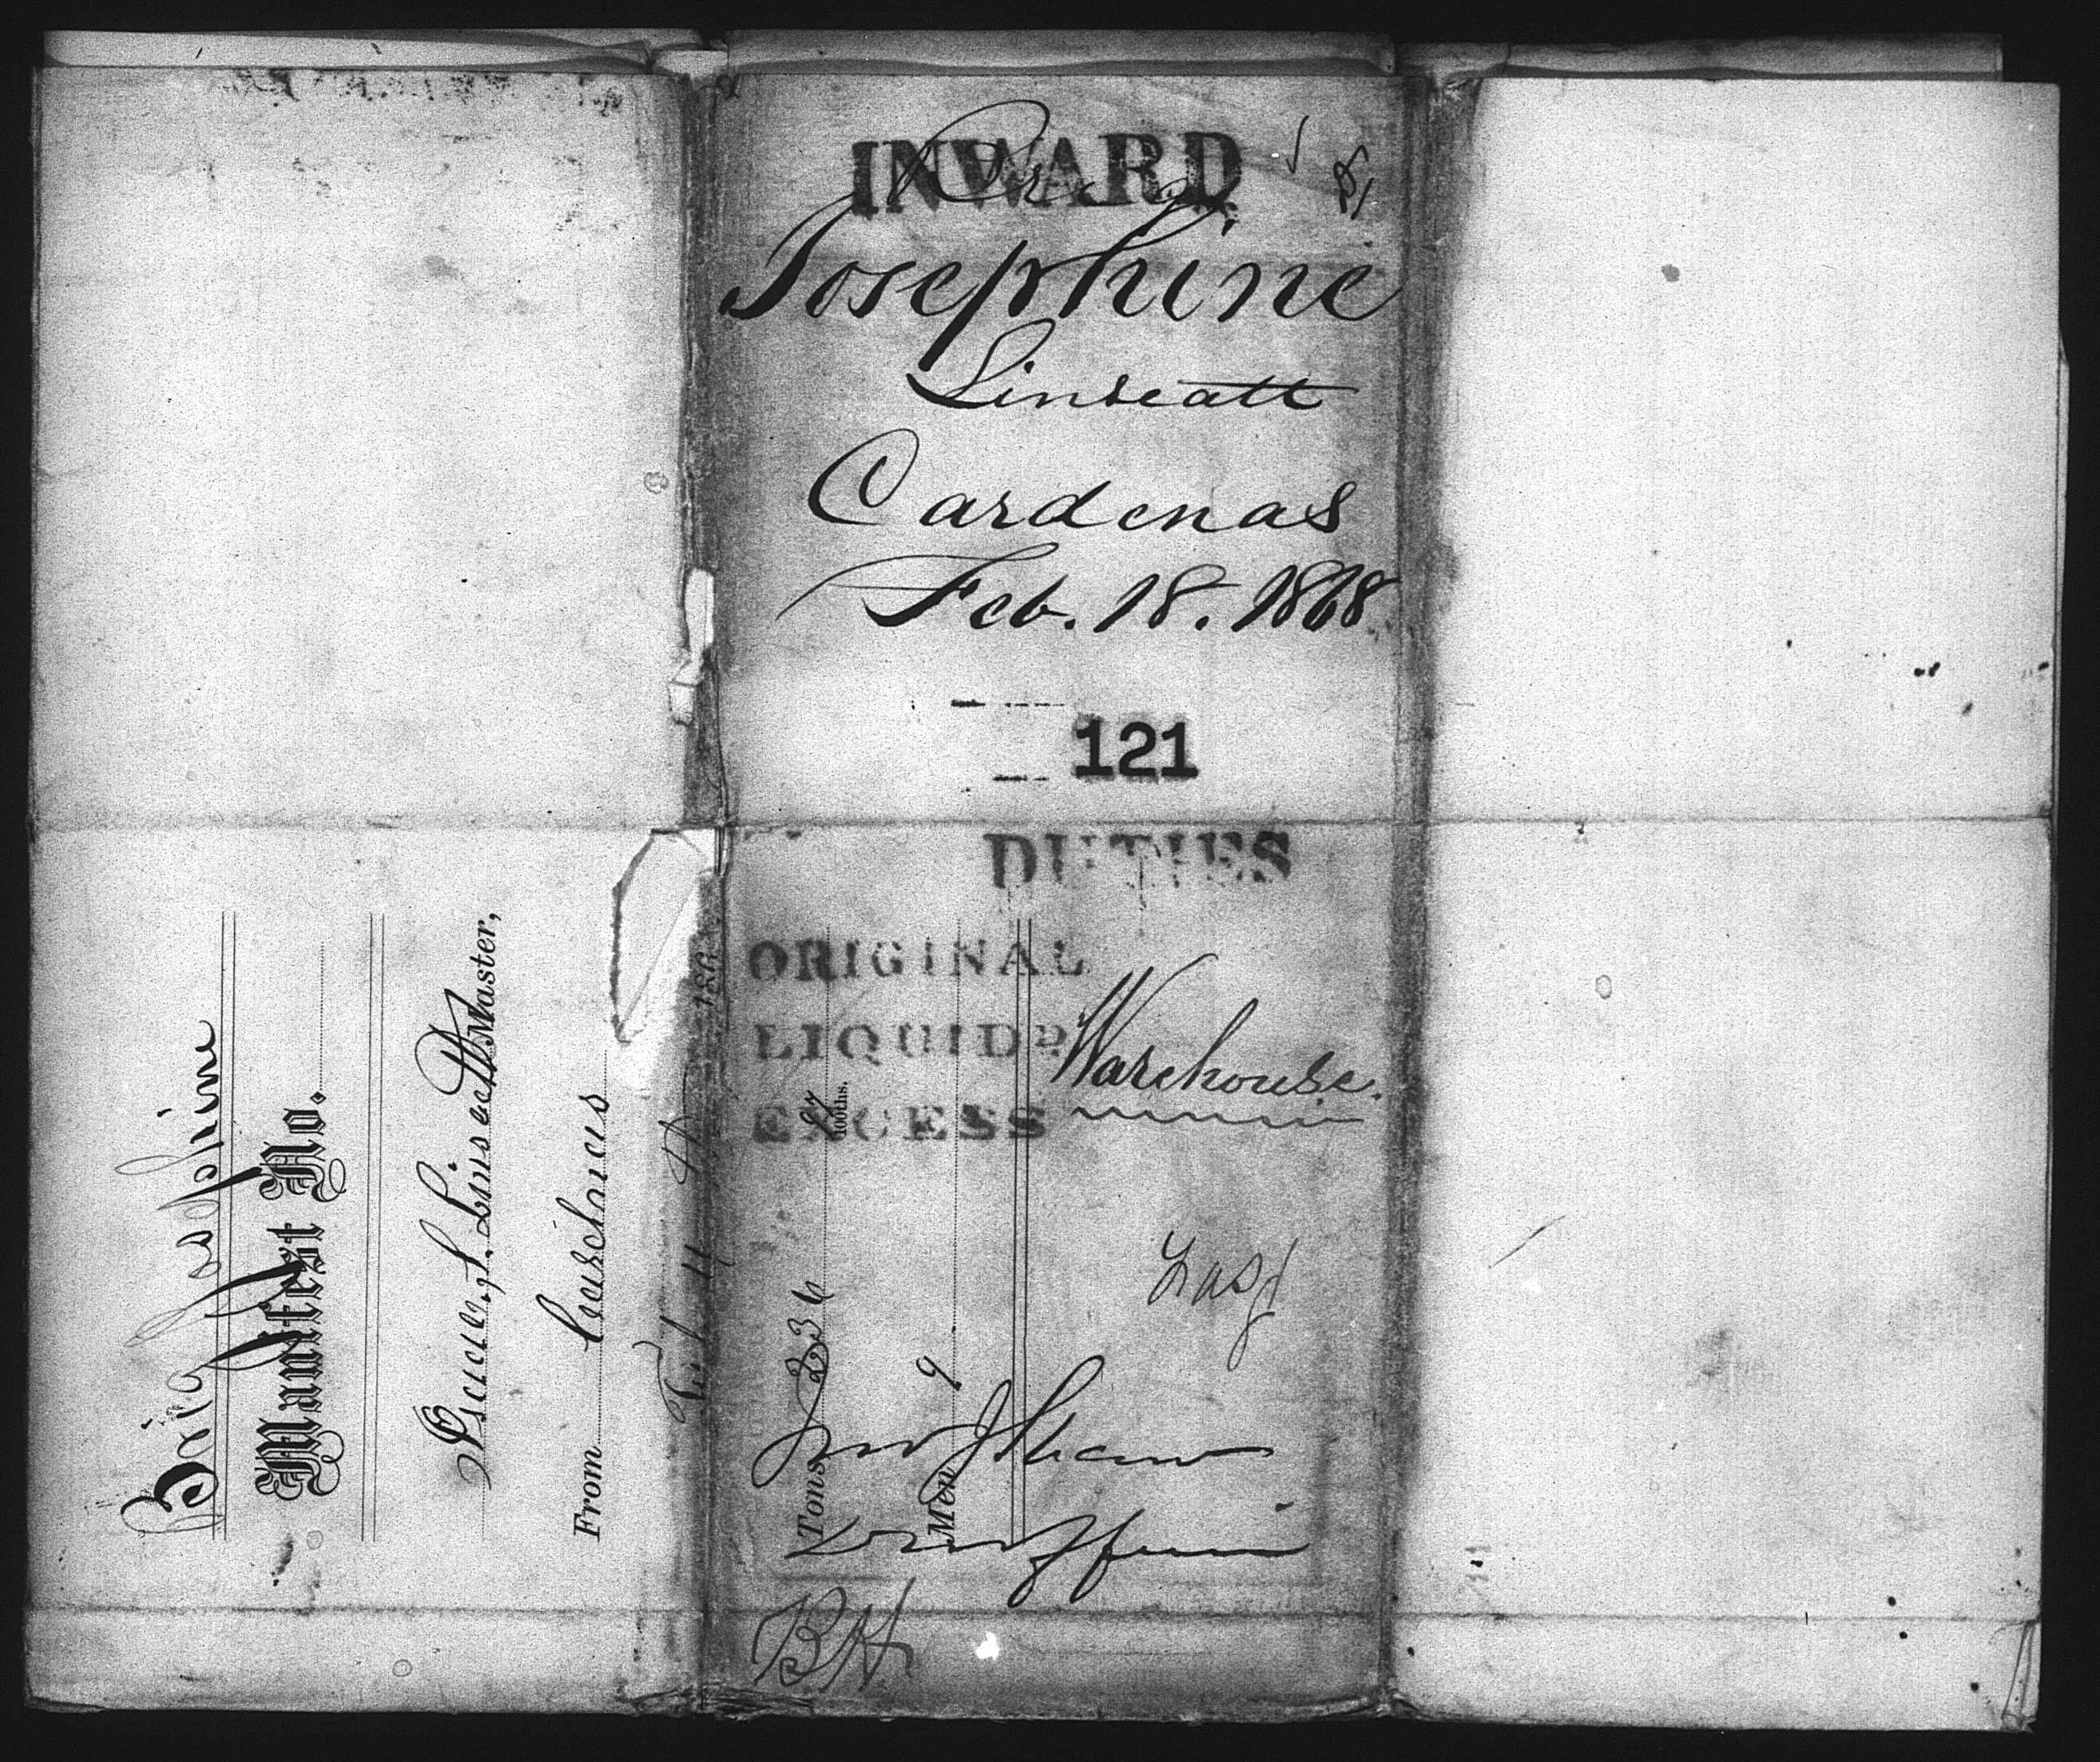 INWARD
Brig
Josephine
Linscott
Cardenas
Feb. 18. 1868
121
DUTIES
ORIGINAL
LIQUIDD
EXCESS
Warehouse.
Jno J Shaw
BH
Brig Josephine
Manifest No.
Linscott Master,
From Cardenas
186
Tons 236 100ths.
Men 9